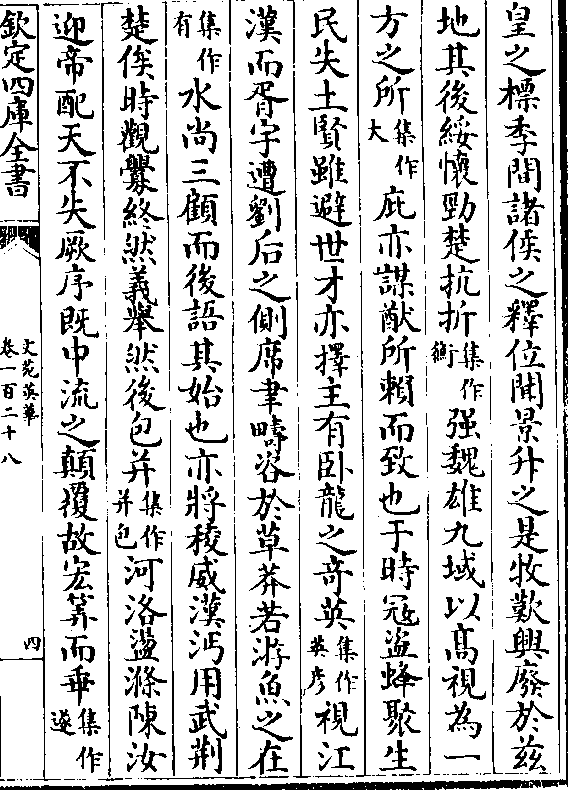 皇之標季聞諸侯之釋位聞景升之是牧歎興廢於玆
地其後綏懷勁楚抗折集作衡强魏雄九域以髙視為一
方之所集作大庇亦謀猷所賴而致也于時冦盗蜂聚生
民失土賢雖避世才亦擇主有卧龍之奇英集作英彦視江
漢而胥宇遭劉后之側席聿疇咨於草莽若游魚之在
集作有水尚三顧而後語其始也亦將稜威漢沔用武荆
楚俟時觀釁終然義舉然後包并集作并包河洛盪滌陳汝
迎帝配天不失厥序既中流之顛覆故宏筭而垂集作遂
欽定四庫全書
文苑英華
卷一百二十八
四